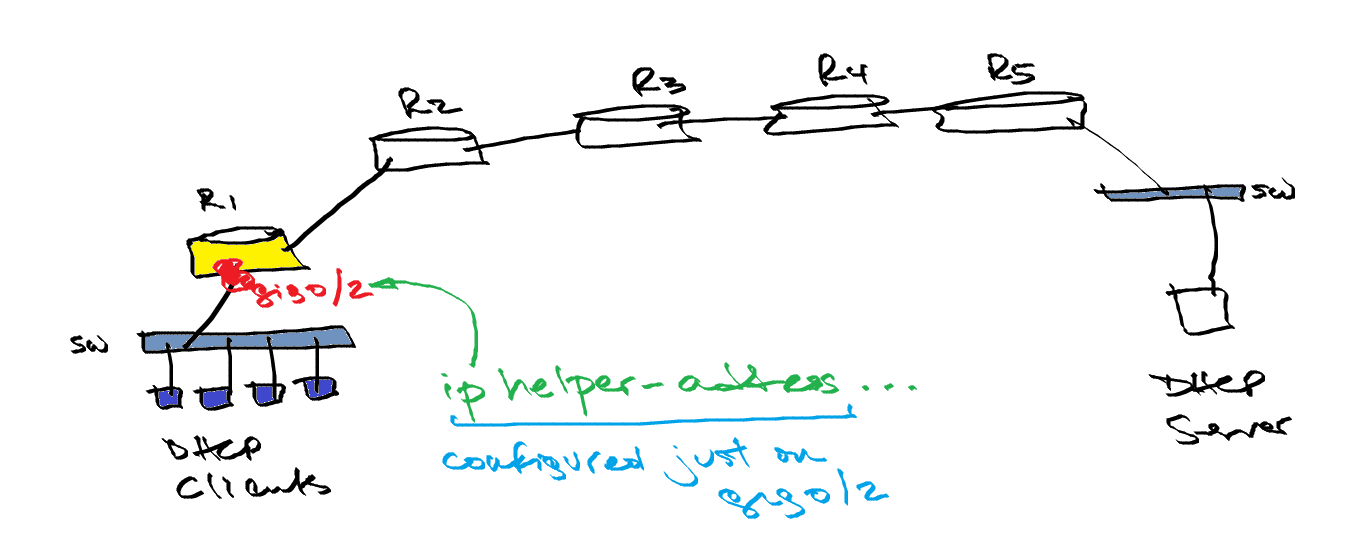 R1
R2
R3
R4
R5
sw
gig0/2
sw
DHCP
Clients
ip helper-address ...
configured just on
gig0/2
DHCP
Server